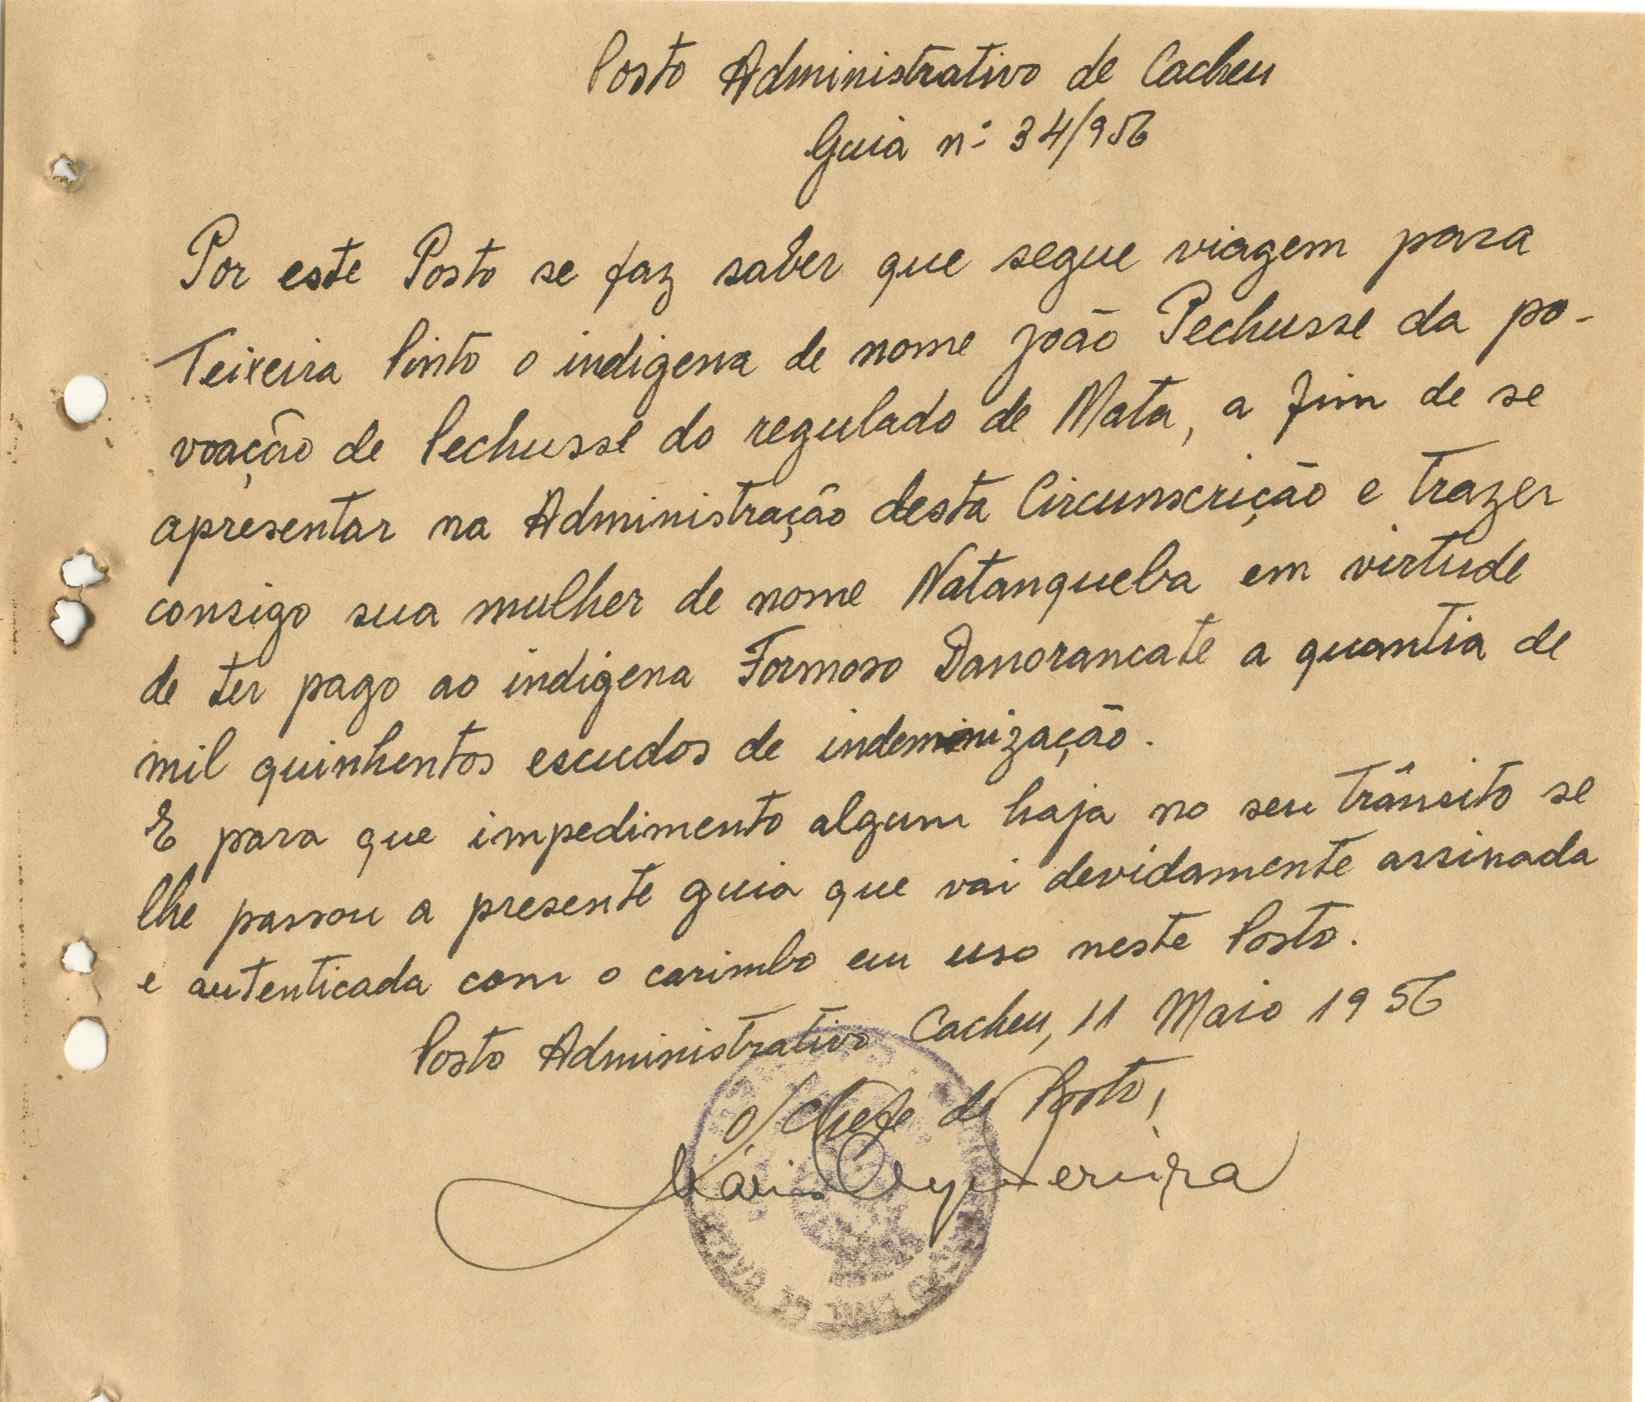 Posto Administrativo de Cacheu
Guia nº 34/956
Por este Posto se faz saber que segue viagem para
Teixeira Pinto o indigena de nome João Pechusse da po-
voação de Pechusse do regulado de Mata, a fim de se
apresentar na Administração desta Circunscrição e trazer
consigo sua mulher de nome Natanqueba em virtude
de ter pago ao indigena Formoso Danorancate a quantia de
mil quinhentos escudos de indeminização.
E para que impedimento algum haja no seu trânsito se
lhe passou a presente guia que vai devidamente assinada
e autenticada com o carimbo em uso neste Posto.
Posto Administrativo Cacheu, 11 Maio 1956
O Chefe do Posto,